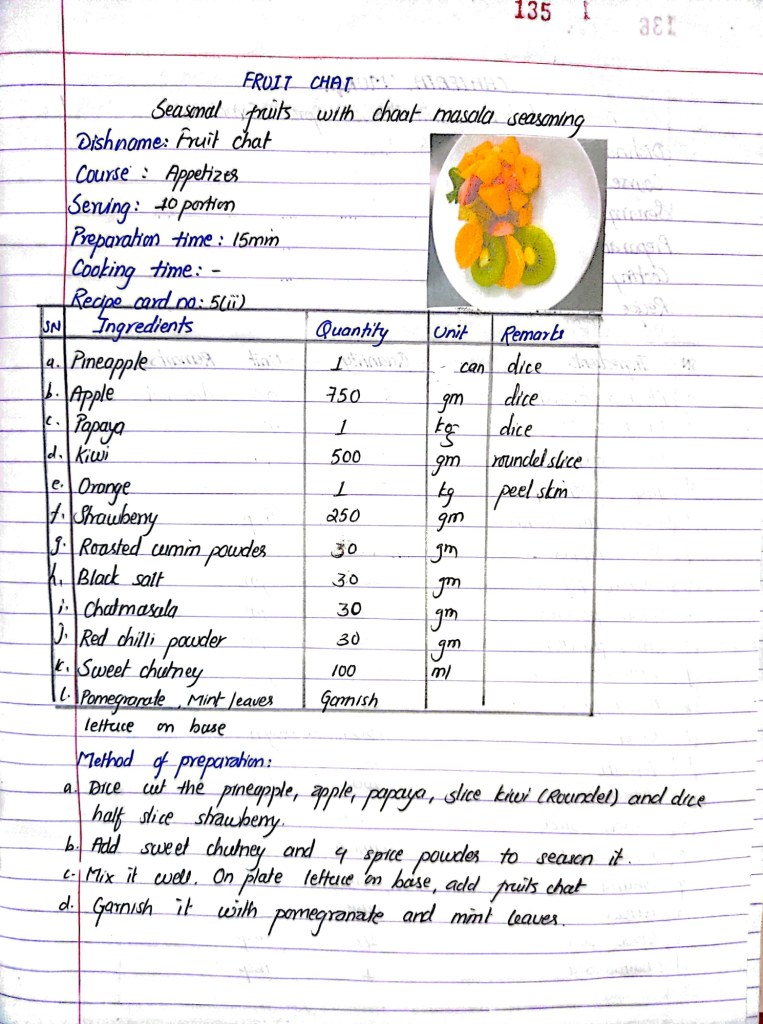 135 1
FRUIT CHAT
Seasonal fruits with chaat masala seasoning
Dishname: Fruit chat
Course : Appetizes
Serving: 10 portion
Preparation time : 15min
Cooking time : -
Recipe card no: 5(ii)
SN Ingredients Quantity Unit Remarks
a. Pineapple 1 can dice
b. Apple 750 gm dice
c. Papaya 1 kg dice
d. Kiwi 500 gm roundel slice
e. Orange 1 kg peel skin
f. Strawberry 250 gm
g. Roasted cumin powder 30 gm
h. Black salt 30 gm
i. Chatmasala 30 gm
j. Red chilli powder 30 gm
k. Sweet chutney 100 ml
l. Pomegranate, Mint leaves Garnish
lettuce on base
Method of preparation:
a. Dice cut the pineapple, apple, papaya, slice kiwi (Roundel) and dice
half slice strawberry.
b. Add sweet chutney and 4 spice powder to season it.
c. Mix it well. On plate lettuce on base, add fruits chat
d. Garnish it with pomegranate and mint leaves.